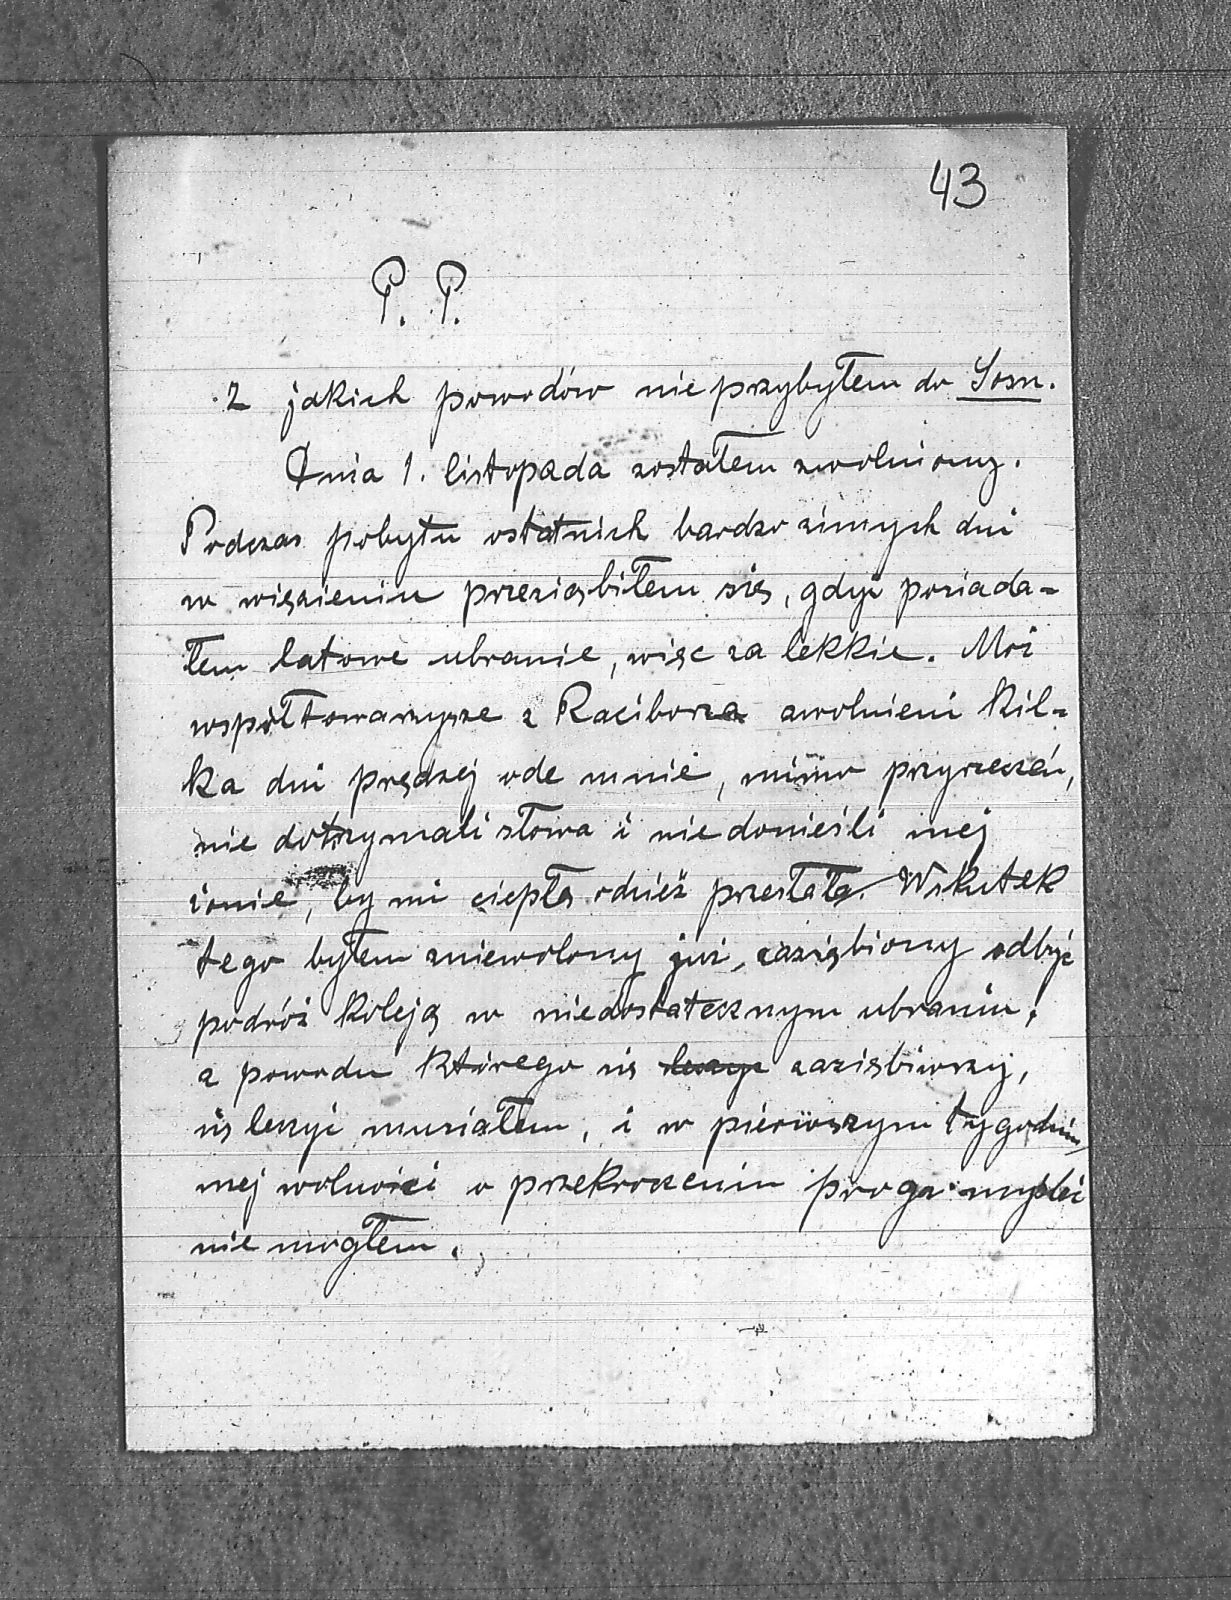 43
P. P.
Z jakich powodów nie przybyłem do Sosn.
Dnia 1. listopada zostałem zwolniony.
Podczas pobytu ostatnich bardzo zimnych dni
w więzieniu przeziębiłem się, gdyż posiada-
łem latowe ubranie, więc za lekkie. Moi
współtowarzysze z Raciborza zwolnieni kil-
ka dni prędzej ode mnie, mimo przyrzeczeń,
nie dotrzymali słowa i nie donieśli mej
żonie, by mi ciepłą odzież przesłała. Wskutek
tego byłem zniewolony już zaziębiony odbyć
podróż koleją w niedostatecznym ubraniu,
z powodu którego zaziębiwszy,
leżyć musiałem, i w pierwszym tygodniu
mej wolności o przekroczeniu progu myśleć
nie mogłem.